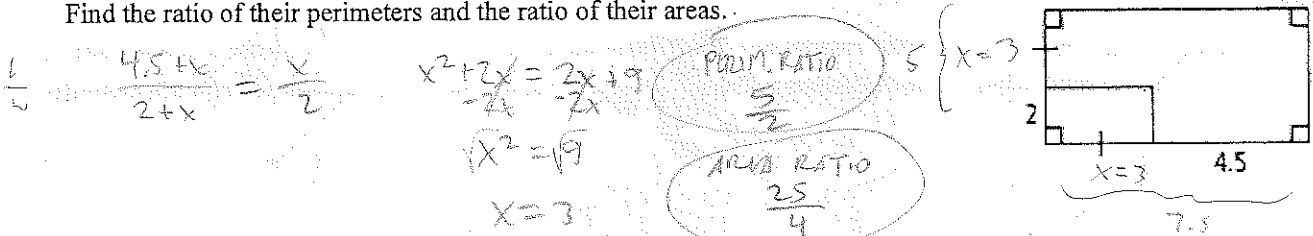 Find the ratio of their perimeters and the ratio of their areas.
4.5 + x / 2 + x = x / 2
x² + 2x = 2x + 9
-2x -2x
√x² = √9
x = 3
PERIM. RATIO
5/2
AREA RATIO
25/4
5 { x = 3
2
x = 3
4.5
7.5